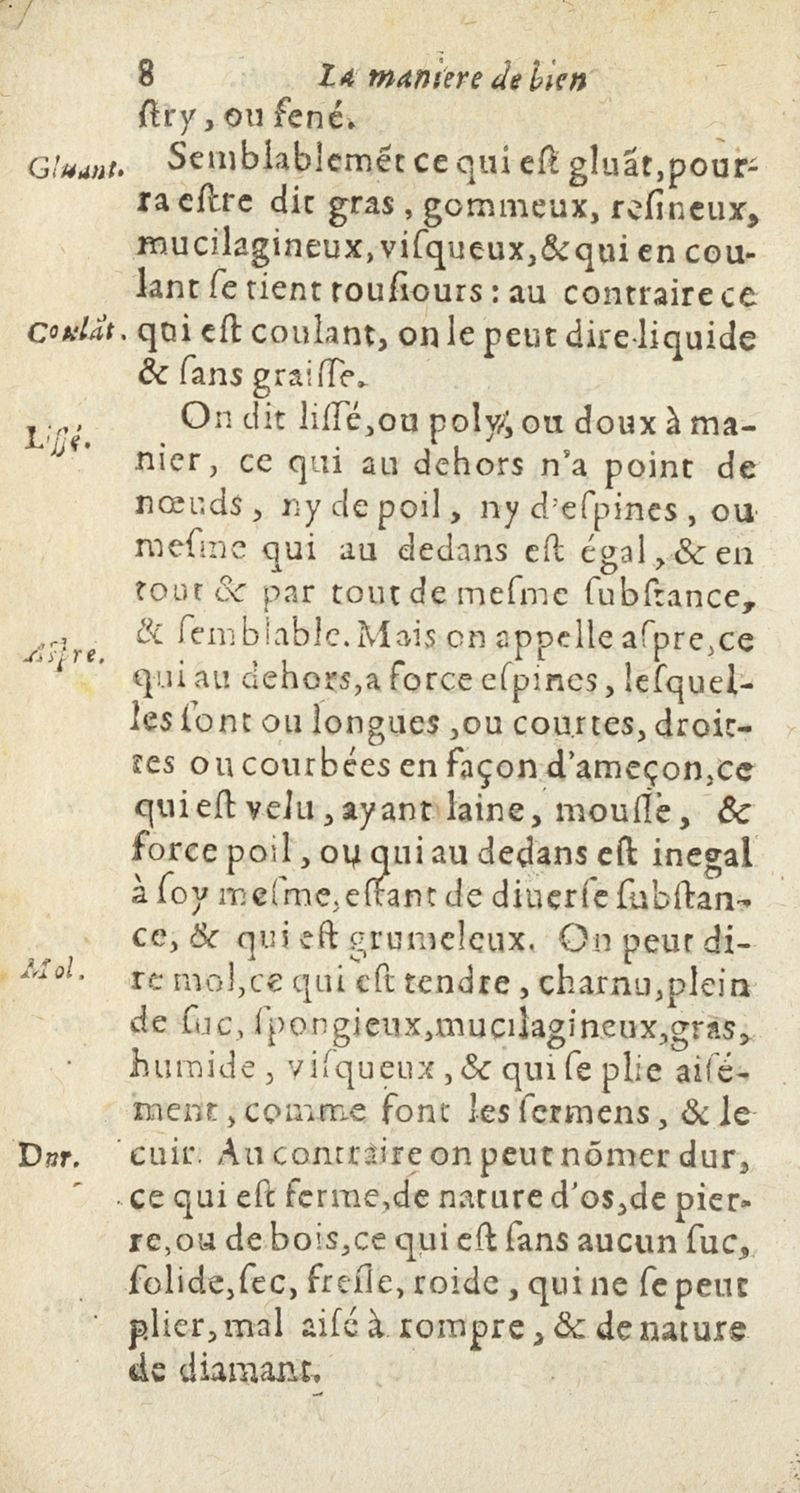 8 La maniere de bien
ſtry, ou ſené.
Gluant. Semblablemẽt ce qui eſt gluãt, pour-
ra eſtre dit gras, gommeux, reſineux,
mucilagineux, viſqueux, & qui en cou-
lant ſe tient touſiours : au contraire ce
Coulãt. qui eſt coulant, on le peut dire liquide
& ſans graiſſe.
Liſſé. On dit liſſé, ou poly, ou doux à ma-
nier, ce qui au dehors n'a point de
nœuds, ny de poil, ny d'eſpines, ou
meſme qui au dedans eſt égal, & en
tout & par tout de meſme ſubſtance,
Aſpre. & ſemblable. Mais on appelle aſpre, ce
qui au dehors, a force eſpines, leſquel-
les ſont ou longues, ou courtes, droit-
tes ou courbées en façon d'ameçon, ce
qui eſt velu, ayant laine, mouſſe, &
force poil, ou qui au dedans eſt inegal
à ſoy meſme, eſtant de diuerſe ſubſtan-
ce, & qui eſt grumeleux. On peut di-
Mol. re mol, ce qui eſt tendre, charnu, plein
de ſuc, ſpongieux, mucilagineux, gras,
humide, viſqueux, & qui ſe plie aiſé-
ment, comme font les ſermens, & le
Dur. cuir. Au contraire on peut nõmer dur,
ce qui eſt ferme, de nature d'os, de pier-
re, ou de bois, ce qui eſt ſans aucun ſuc,
ſolide, ſec, freſle, roide, qui ne ſe peut
plier, mal aiſé à rompre, & de nature
de diamant.